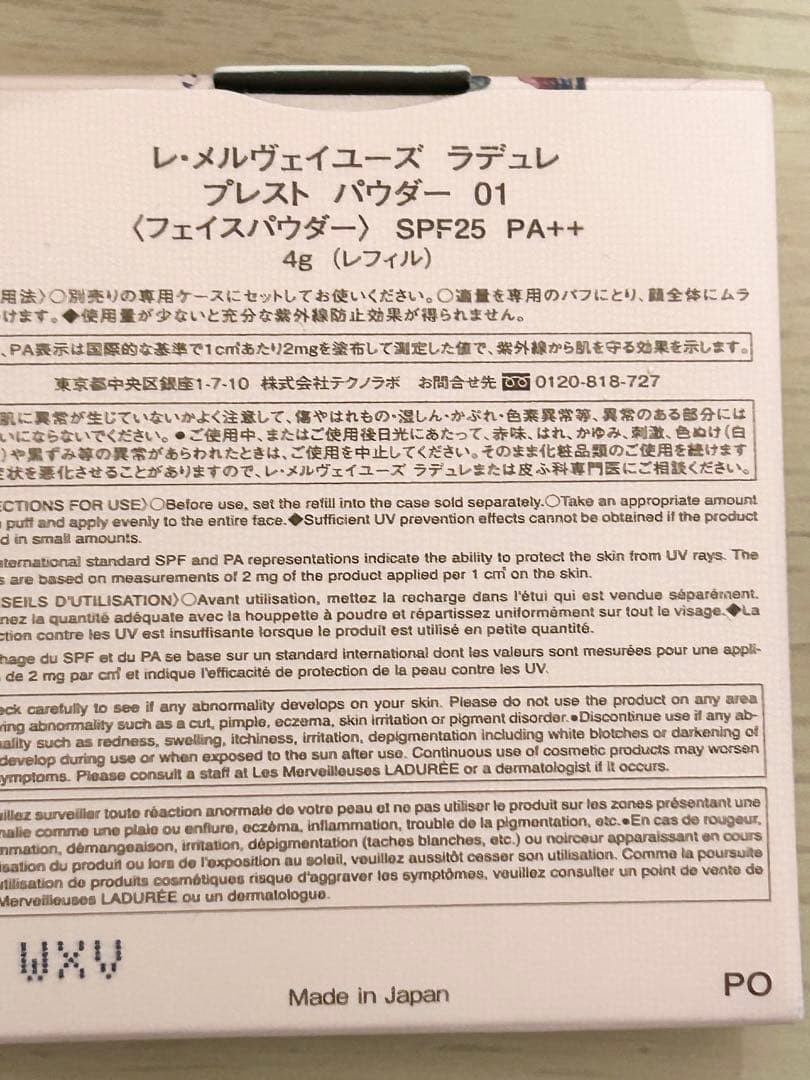 レ・メルヴェイユーズ ラデュレ
プレスト パウダー 01
〈フェイスパウダー〉 SPF25 PA++
4g （レフィル）
用法〉○別売りの専用ケースにセットしてお使いください。○適量を専用のパフにとり、顔全体にムラ
けます。◆使用量が少ないと充分な紫外線防止効果が得られません。
、PA表示は国際的な基準で1c㎡あたり2mgを塗布して測定した値で、紫外線から肌を守る効果を示します。
東京都中央区銀座1-7-10 株式会社テクノラボ お問合せ先 0120-818-727
肌に異常が生じていないかよく注意して、傷やはれもの・湿しん・かぶれ・色素異常等、異常のある部分には
いにならないでください。●ご使用中、またはご使用後日光にあたって、赤味、はれ、かゆみ、刺激、色ぬけ（白
）や黒ずみ等の異常があらわれたときは、ご使用を中止してください。そのまま化粧品類のご使用を続けます
症状を悪化させることがありますので、レ・メルヴェイユーズ ラデュレまたは皮ふ科専門医にご相談ください。
ECTIONS FOR USE〉○Before use, set the refill into the case sold separately.○Take an appropriate amount
puff and apply evenly to the entire face.◆Sufficient UV prevention effects cannot be obtained if the product
d in small amounts.
nternational standard SPF and PA representations indicate the ability to protect the skin from UV rays. The
s are based on measurements of 2 mg of the product applied per 1 c㎡ on the skin.
SEILS D'UTILISATION〉○Avant utilisation, mettez la recharge dans l'étui qui est vendue séparément.
nez la quantité adéquate avec la houppette à poudre et répartissez uniformément sur tout le visage.◆La
ction contre les UV est insuffisante lorsque le produit est utilisé en petite quantité.
hage du SPF et du PA se base sur un standard international dont les valeurs sont mesurées pour une appli-
de 2 mg par c㎡ et indique l'efficacité de protection de la peau contre les UV.
eck carefully to see if any abnormality develops on your skin. Please do not use the product on any area
ving abnormality such as a cut, pimple, eczema, skin irritation or pigment disorder.●Discontinue use if any ab-
ality such as redness, swelling, itchiness, irritation, depigmentation including white blotches or darkening of
develop during use or when exposed to the sun after use. Continuous use of cosmetic products may worsen
ymptoms. Please consult a staff at Les Merveilleuses LADURÉE or a dermatologist if it occurs.
uillez surveiller toute réaction anormale de votre peau et ne pas utiliser le produit sur les zones présentant une
malie comme une plaie ou enflure, eczéma, inflammation, trouble de la pigmentation, etc.●En cas de rougeur,
mmation, démangeaison, irritation, dépigmentation (taches blanches, etc.) ou noirceur apparaissant en cours
lisation du produit ou lors de l'exposition au soleil, veuillez aussitôt cesser son utilisation. Comme la poursuite
utilisation de produits cosmétiques risque d'aggraver les symptômes, veuillez consulter un point de vente de
Merveilleuses LADURÉE ou un dermatologue.
WXV
Made in Japan
PO